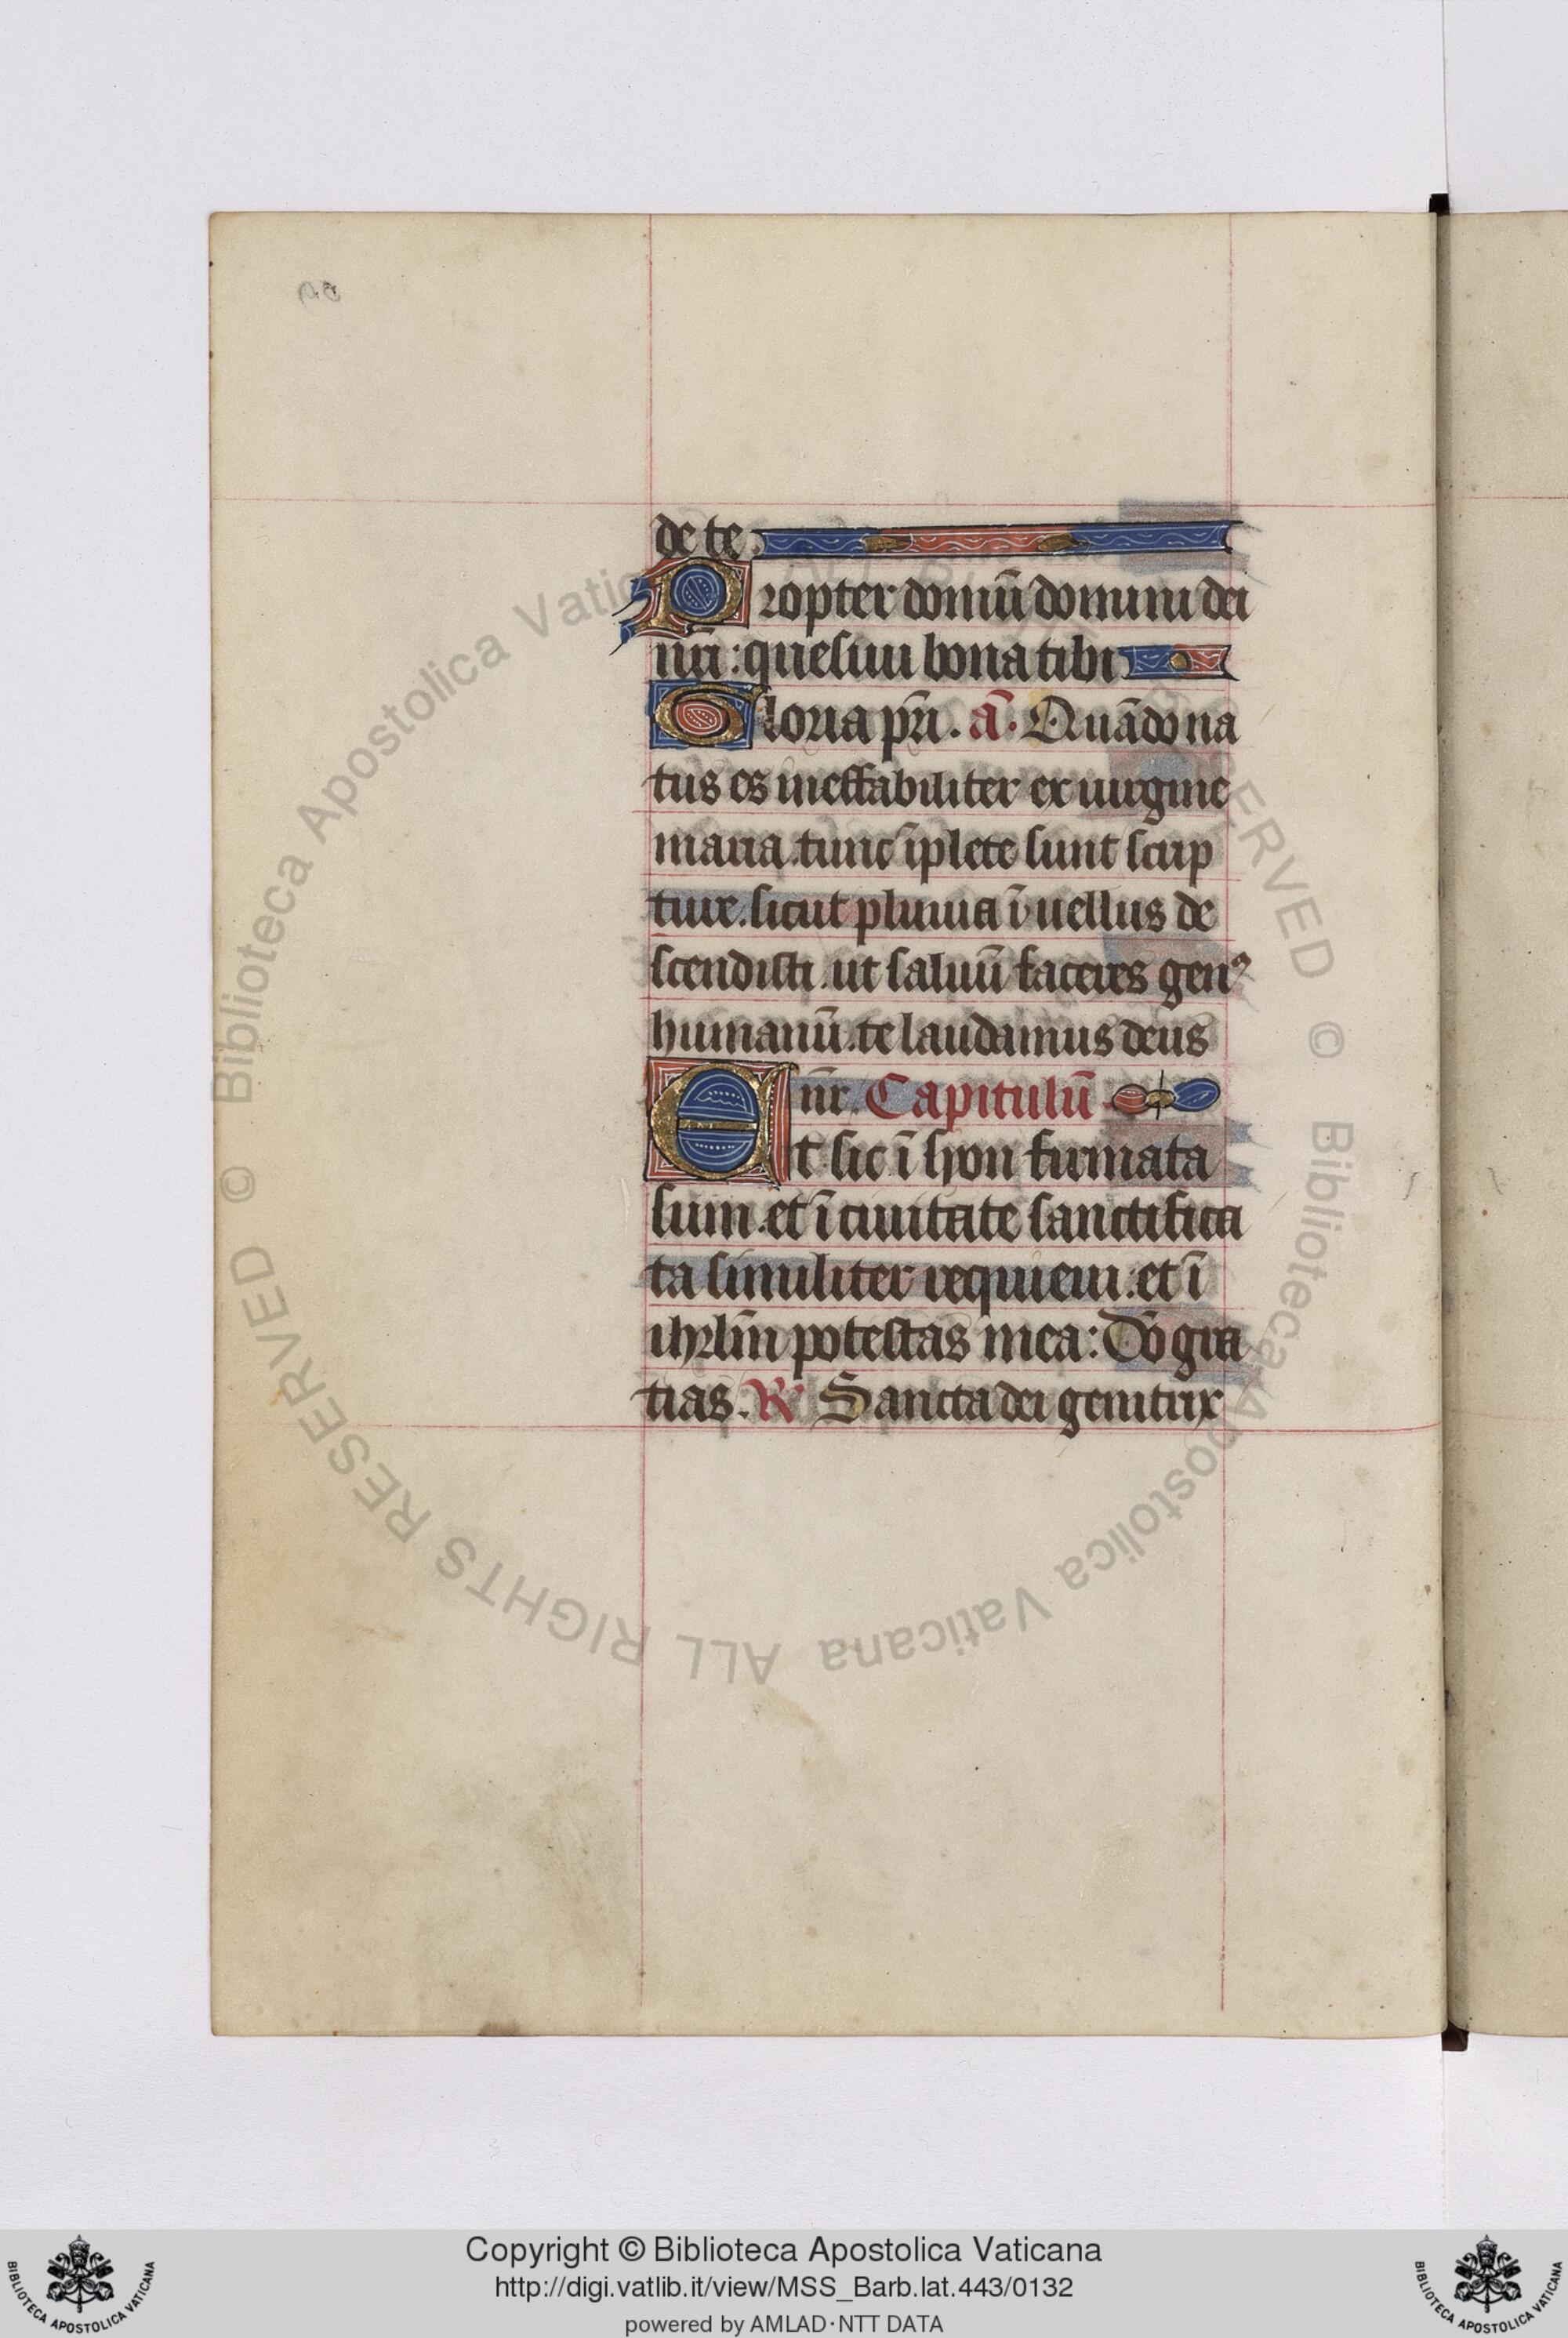 de te.
Propter domū domini dei
nr̄i: quesiui bona tibi
Gloria pr̄i. ā. Quādo na
tus es ineffabiliter ex uirgine
maria. tunc īplete sunt scrip
ture. sicut pluuia ī uellus de
scendisti. ut saluū faceres genꝰ
humanū. te laudamus deus
nr̄. Capitulū
Et sic ī syon firmata
sum. et ī ciuitate sanctifica
ta similiter requieui: et ī
ihrl̄m potestas mea: Dō gra
tias. ℟ Sancta dei genitrix
© Biblioteca Apostolica Vaticana ALL RIGHTS RESERVED
© Biblioteca Apostolica Vaticana ALL RIGHTS RESERVED
Copyright © Biblioteca Apostolica Vaticana
http://digi.vatlib.it/view/MSS_Barb.lat.443/0132
powered by AMLAD·NTT DATA
BIBLIOTECA APOSTOLICA VATICANA
BIBLIOTECA APOSTOLICA VATICANA